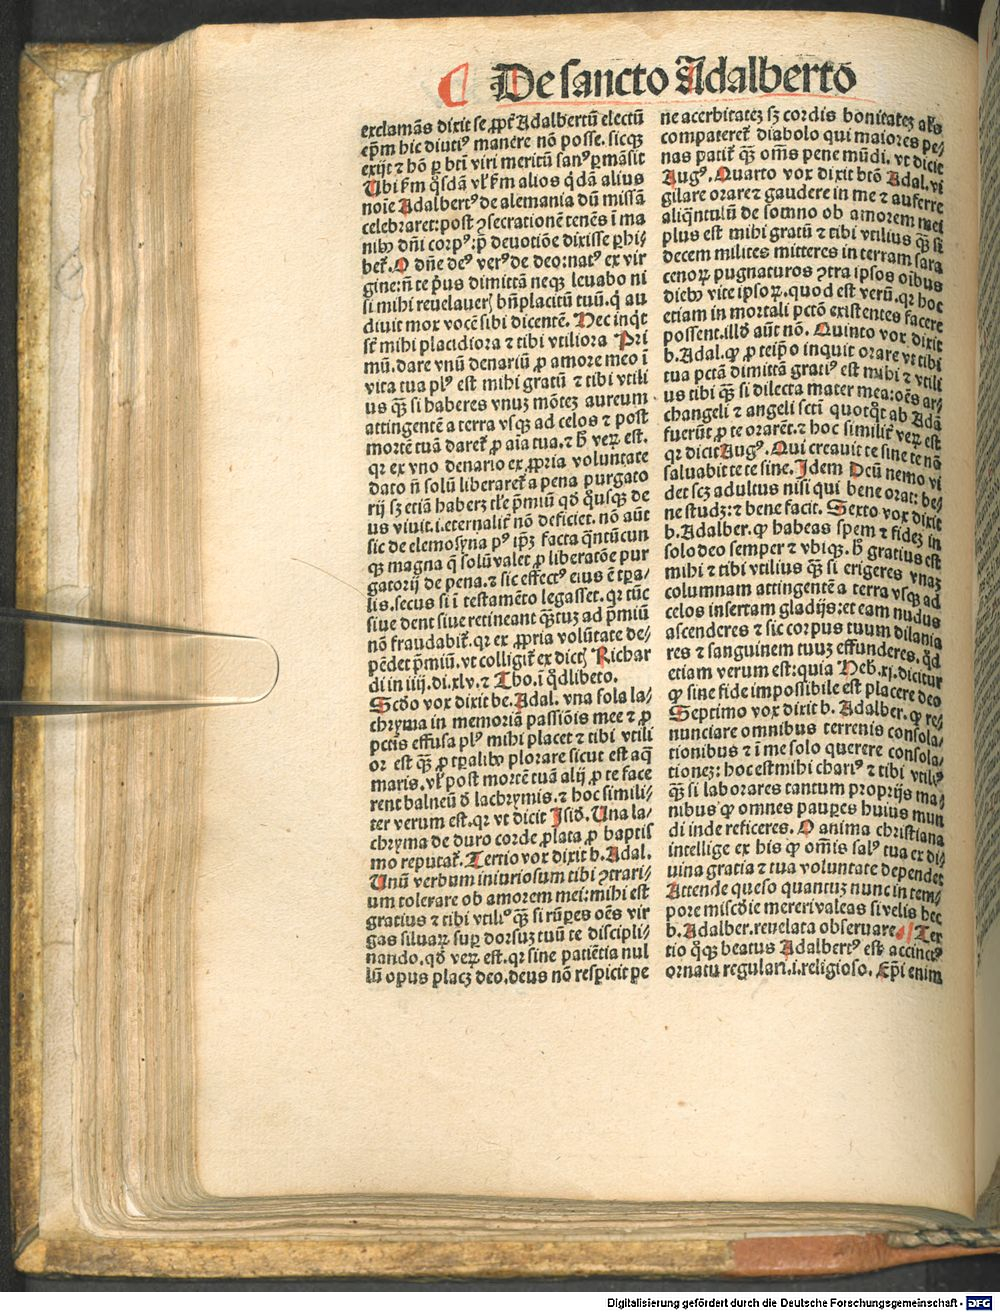 De sancto Adalberto
exclamãs dixit se ꝓpt̃ Adalbertũ electũ
ep̃m hic diutiꝰ manere nõ posse. sicqꝫ
exijt ⁊ hõ ꝑ bt̃i viri meritũ sanꝰ ꝑmãsit
Ubi ẜm q̃sdã vl̓ ẜm alios q̓dã alius
noĩe Adalbertꝰ de alemania dũ missã
celebraret: post ꝯsecrationẽ tenẽs ĩ ma
nibꝰ dñi corpꝰ: p̃ deuotiõe dixisse ꝑhi-
bet̃. O dñe deꝰ verꝰ de deo: natꝰ ex vir
gine: ñ te p̃us dimittã neqꝫ leuabo ni
si mihi reuelaueris bñplacitũ tuũ. q̓ au
diuit mox vocẽ sibi dicentẽ. Hec inq̓t
sũt mihi placidiora ⁊ tibi vtiliora Pri
mũ. dare vnũ denariũ ꝓ amore meo ĩ
vita tua plꝰ est mihi gratũ ⁊ tibi vtili
us q̃ꝫ si haberes vnuꝫ mõteꝫ aureum
attingentẽ a terra vsqꝫ ad celos ⁊ post
mortẽ tuã daret̃ ꝓ aĩa tua. ⁊ h̓ veꝝ est.
qꝛ ex vno denario ex ꝓpria voluntate
dato ñ solũ liberaret̃ a pena purgato
rij sꝫ etiã haberꝫ tl̓e p̃miũ qð q̓usqꝫ de
us viuit. i. eternalit̓ nõ deficiet. nõ aũt
sic de elemosyna pꝰ ip̃ꝫ facta q̃ntũcun
qꝫ magna q̃ solũ valet ꝓ liberatõe pur
gatorij de pena. ⁊ sic effectꝰ eius ẽ tp̃a-
lis. secus si ĩ testamẽto legasset. qꝛ tũc
siue dent siue retineant q̃tuꝫ ad p̃miũ
nõ fraudabit̃. qꝛ ex ꝓpria volũtate de-
pẽdet p̃miũ. vt colligit̃ ex dictis Richar
di in iiij. di. xlv. ⁊ Tho. ĩ q̃dlibeto.
Scðo vox dixit be. Adal. vna sola la-
chryma in memoriã passiõis mee ⁊ ꝓ
pctis effusa plꝰ mihi placet ⁊ tibi vtili
or est q̃ꝫ ꝓ tp̃alibꝰ plorare sicut est aq̃
maris. vl̓ post mortẽ tuã alij ꝓ te face
rent balneũ ð lachrymis. ⁊ hoc simili-
ter verum est. qꝛ vt dicit Isið. Una la-
chryma de duro corde ꝓlata ꝓ baptis
mo reputat̃. Tertio vox dixit b. Adal.
Unũ verbum iniuriosum tibi ꝯtrari-
um tolerare ob amorem mei: mihi est
gratius ⁊ tibi vtiliꝰ q̃ꝫ si rũperes oẽs vir
gas siluaꝝ suꝑ dorsuꝫ tuũ te discipli-
nando. qð veꝝ est. qꝛ sine patiẽtia nul
lũ opus placꝫ deo. deus nõ respicit pe
ne acerbitateꝫ sꝫ cordis bonitateꝫ al̓s
compateret̃ diabolo qui maiores pe-
nas patit̃ q̃ꝫ om̃s pene mũdi. vt dicit
Augꝰ. Quarto vox dixit btõ Adal. vi
gilare orare ⁊ gaudere in me ⁊ auferre
aliq̃ntulũ de somno ob amorem mei
plus est mihi gratũ ⁊ tibi vtilius q̃ꝫ si
decem milites mitteres in terram sara
cenoꝝ pugnaturos ꝯtra ipsos oĩbus
diebꝰ vite ipsoꝝ. quod est verũ. qꝛ hoc
etiam in mortali pctõ existentes facere
possent. illð aũt nõ. Quinto vox dixit
b. Adal. ꝙ ꝓ teip̃o inquit orare vt tibi
tua pctã dimittã gratiꝰ est mihi ⁊ vtili
us tibi q̃ꝫ si dilecta mater mea: oẽs ar-
changeli ⁊ angeli scti quotq̓t ab Adã
fuerũt ꝓ te orarẽt. ⁊ hoc similit̓ veꝝ est
qꝛ dicit Augꝰ. Qui creauit te sine te nõ
saluabit te te sine. Idem Deũ nemo vi
det scꝫ adultus nisi qui bene orat: be-
ne studꝫ: ⁊ bene facit. Sexto vox dixit
b. Adalber. ꝙ habeas spem ⁊ fideꝫ in
solo deo semper ⁊ vbiqꝫ. h̓ gratius est
mihi ⁊ tibi vtilius q̃ꝫ si erigeres vnaꝫ
columnam attingentẽ a terra vsqꝫ ad
celos insertam gladijs: et eam nudus
ascenderes ⁊ sic corpus tuum dilania
res ⁊ sanguinem tuuꝫ effunderes. q̃d
etiam verum est: quia Heb. xj. dicitur
ꝙ sine fide impossibile est placere deo
Septimo vox dixit b. Adalber. ꝙ re-
nunciare omnibus terrenis consola-
tionibus ⁊ ĩ me solo querere consola-
tioneꝫ: hoc est mihi chariꝰ ⁊ tibi vtiliꝰ
q̃ꝫ si laborares tantum proprijs ma-
nibus ꝙ omnes pauꝑes huius mun
di inde reficeres. O anima christiana
intellige ex his ꝙ om̃is salꝰ tua ex di-
uina gratia ⁊ tua voluntate dependet
Attende queso quantuꝫ nunc in tem-
pore miscðie mereri valeas si velis hec
b. Adalber. reuelata obseruare. Ter
tio q̓qꝫ beatus Adalbertꝰ est accinctꝰ
ornatu regulari. i. religioso. Ep̃i enim
Digitalisierung gefördert durch die Deutsche Forschungsgemeinschaft - DFG